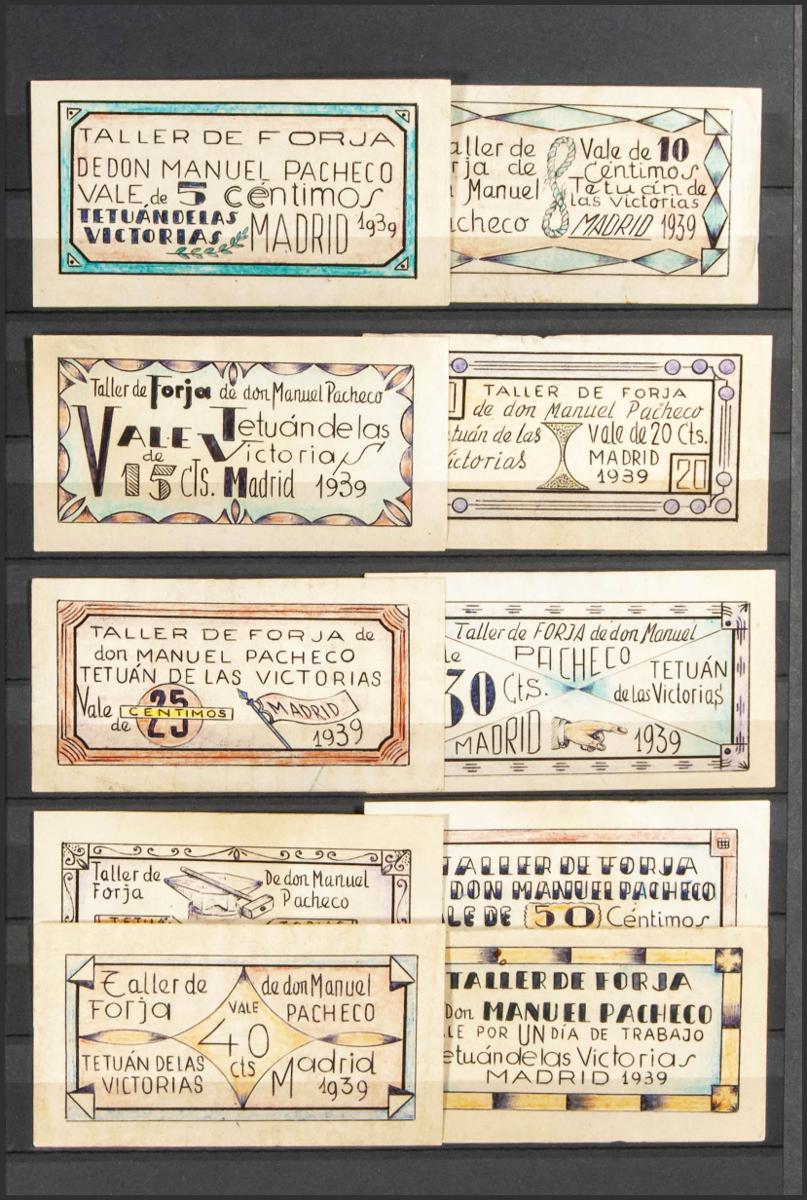 TALLER DE FORJA
DE DON MANUEL PACHECO
VALE de 5 céntimos
TETUÁN DE LAS
VICTORIAS MADRID 1939
aller de
rja de
Manuel
acheco
Vale de 10
Céntimos
Tetuán de
las Victorias
MADRID 1939
Taller de Forja de don Manuel Pacheco
VALE Tetuán de las
de Victorias
15 CTS. Madrid 1939
TALLER DE FORJA
de don Manuel Pacheco
tuán de las Vale de 20 Cts.
ictorias MADRID
1939
20
TALLER DE FORJA de
don MANUEL PACHECO
TETUÁN DE LAS VICTORIAS
Vale 25
de CENTIMOS
MADRID
1939
Taller de FORJA de don Manuel
PACHECO
le
30 Cts.
TETUÁN
de las Victorias
MADRID 1939
Taller de
Forja
De don Manuel
Pacheco
TALLER DE FORJA
DON MANUEL PACHECO
LE DE 50 Céntimos
Taller de
Forja
de don Manuel
PACHECO
VALE
40
cts
TETUÁN DE LAS
VICTORIAS
Madrid
1939
TALLER DE FORJA
Don MANUEL PACHECO
LE POR UN DÍA DE TRABAJO
etuán de las Victorias
MADRID 1939